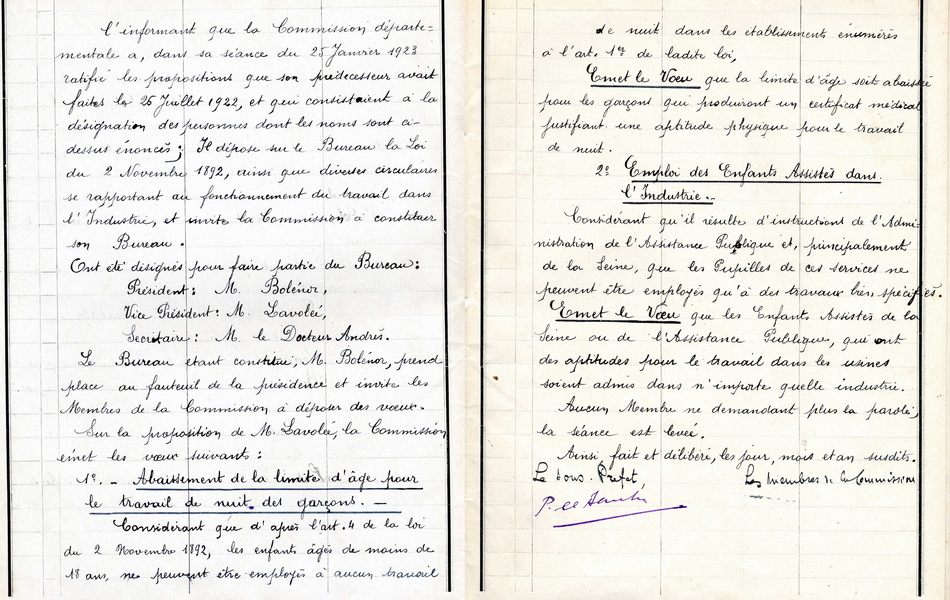 l'informant que la Commission départe=
mentale a, dans sa séance du 25 Janvier 1923
ratifié les propositions que son prédecesseur avait
faites le 26 Juillet 1922, et qui consistaient à la
désignation des personnes dont les noms sont ci-
dessus énoncés; Il dépose sur le Bureau la Loi
du 2 Novembre 1892, ainsi que diverses circulaires
se rapportant au fonctionnement du travail dans
l'Industrie, et invite la Commission à constituer
son Bureau.
Ont été désignés pour faire partie du Bureau:
Président: M. Bolénor,
Vice Président: M. Lavolée,
Secrétaire: M. le Docteur Andrés.
Le Bureau étant constitué, M. Bolénor, prend
place au fauteuil de la présidence et invite les
Membres de la Commission à déposer des vœux.
Sur la proposition de M. Lavolée, la Commission
émet les vœux suivants:
1º. - Abaissement de la limite d'âge pour
le travail de nuit des garçons. -
Considérant que d'après l'art. 4 de la loi
du 2 Novembre 1892, les enfants âgés de moins de
18 ans, ne peuvent être employés à aucun travail
de nuit dans les établissements énumérés
à l'art. 1er de ladite loi,
Émet le Vœu que la limite d'âge soit abaissée
pour les garçons qui produiront un certificat médical
justifiant une aptitude physique pour le travail
de nuit.
2º Emploi des Enfants Assistés dans
l'Industrie. -
Considérant qu'il résulte d'instructions de l'Admi-
nistration de l'Assistance Publique et, principalement
de la Seine, que les Pupilles de ces services ne
peuvent être employés qu'à des travaux bien spécifiés.
Émet le Vœu que les Enfants Assistés de la
Seine ou de l'Assistance Publique, qui ont
des aptitudes pour le travail dans les usines
soient admis dans n'importe quelle industrie.
Aucun Membre ne demandant plus la parole,
la séance est levée.
Ainsi, fait et délibéré, les jour, mois et an susdits.
Le Sous-Préfet,
Les Membres de la Commission